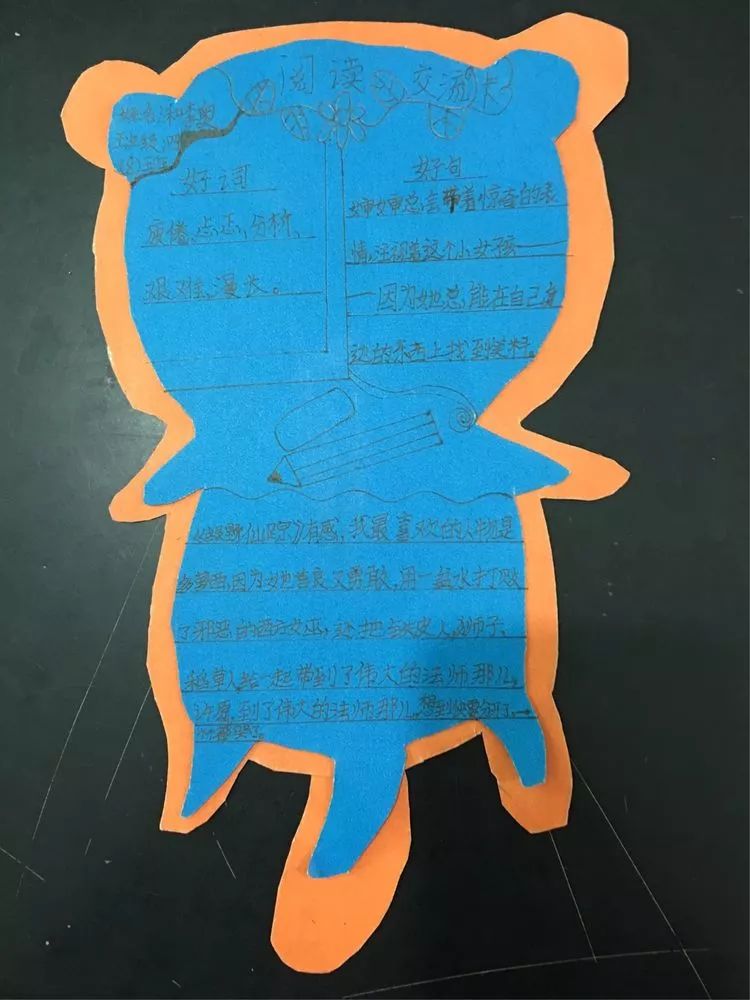 阅读交流卡
姓名
好词
疲倦、点点、分析、
艰难、漫长。
好句
婶婶总会带着惊奇的表
情，注视着这个小女孩——
因为她总能在自己身
边的东西上找到笑料。
《绿野仙踪》有感，我最喜欢的人物是
多萝西，因为她善良又勇敢，用一盆水打败
了邪恶的西方女巫，还把铁皮人、狮子、
稻草人给一起带到了伟大的法师那儿。
许愿，到了伟大的法师那儿，想到